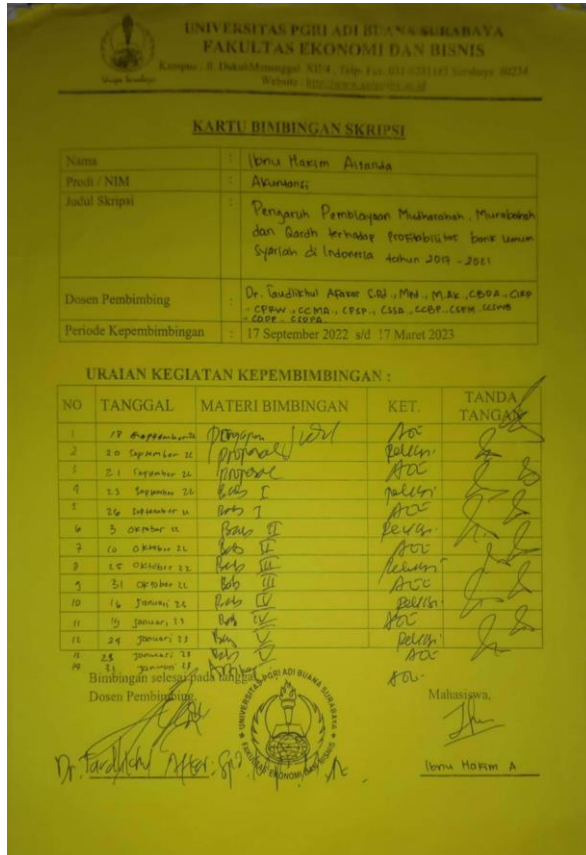 UNIVERSITAS PGRI ADI BUANA SURABAYA
FAKULTAS EKONOMI DAN BISNIS
Kampus : Jl. Dukuh Menanggal XII/4, Telp. Fax. 031-8281183 Surabaya 60234
Website :
KARTU BIMBINGAN SKRIPSI
Nama : Ibnu Hakim
Prodi / NIM : Akuntansi
Judul Skripsi : Pengaruh Pembiayaan Mudharabah, Murabahah
dan Qardh terhadap Profitabilitas bank umum
Syariah di Indonesia tahun 2017 - 2021
Dosen Pembimbing : Dr.
CPRW., CCMA., CPSP., CSSA., CCBP.,
Periode Kepembimbingan : 17 September 2022 s/d 17 Maret 2023
URAIAN KEGIATAN KEPEMBIMBINGAN :
NO TANGGAL MATERI BIMBINGAN KET. TANDA TANGAN
1 18 Judul ACC
2 20 September 22 Proposal Revisi
3 21 September 22 Proposal ACC
4 23 September 22 Bab I Revisi
5 26 September 22 Bab I ACC
6 3 Oktober 22 Bab II Revisi
7 10 Oktober 22 Bab II ACC
8 25 Oktober 22 Bab III Revisi
9 31 Oktober 22 Bab III ACC
10 16 Januari 23 Bab IV Revisi
11 19 Januari 23 Bab IV ACC
12 24 Januari 23 Bab V Revisi
13 28 Januari 23 Bab V ACC
14 31 Januari 23 ACC
Bimbingan selesai pada tanggal
Dosen Pembimbing, Mahasiswa,
UNIVERSITAS PGRI ADI BUANA SURABAYA
FAKULTAS EKONOMI DAN BISNIS
Dr.
Ibnu Hakim A